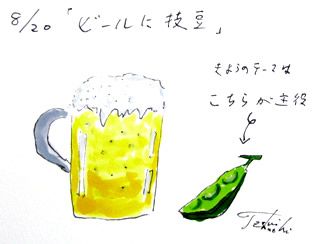 8/20「ビールに枝豆」
きょうのテーマは
こちらが主役